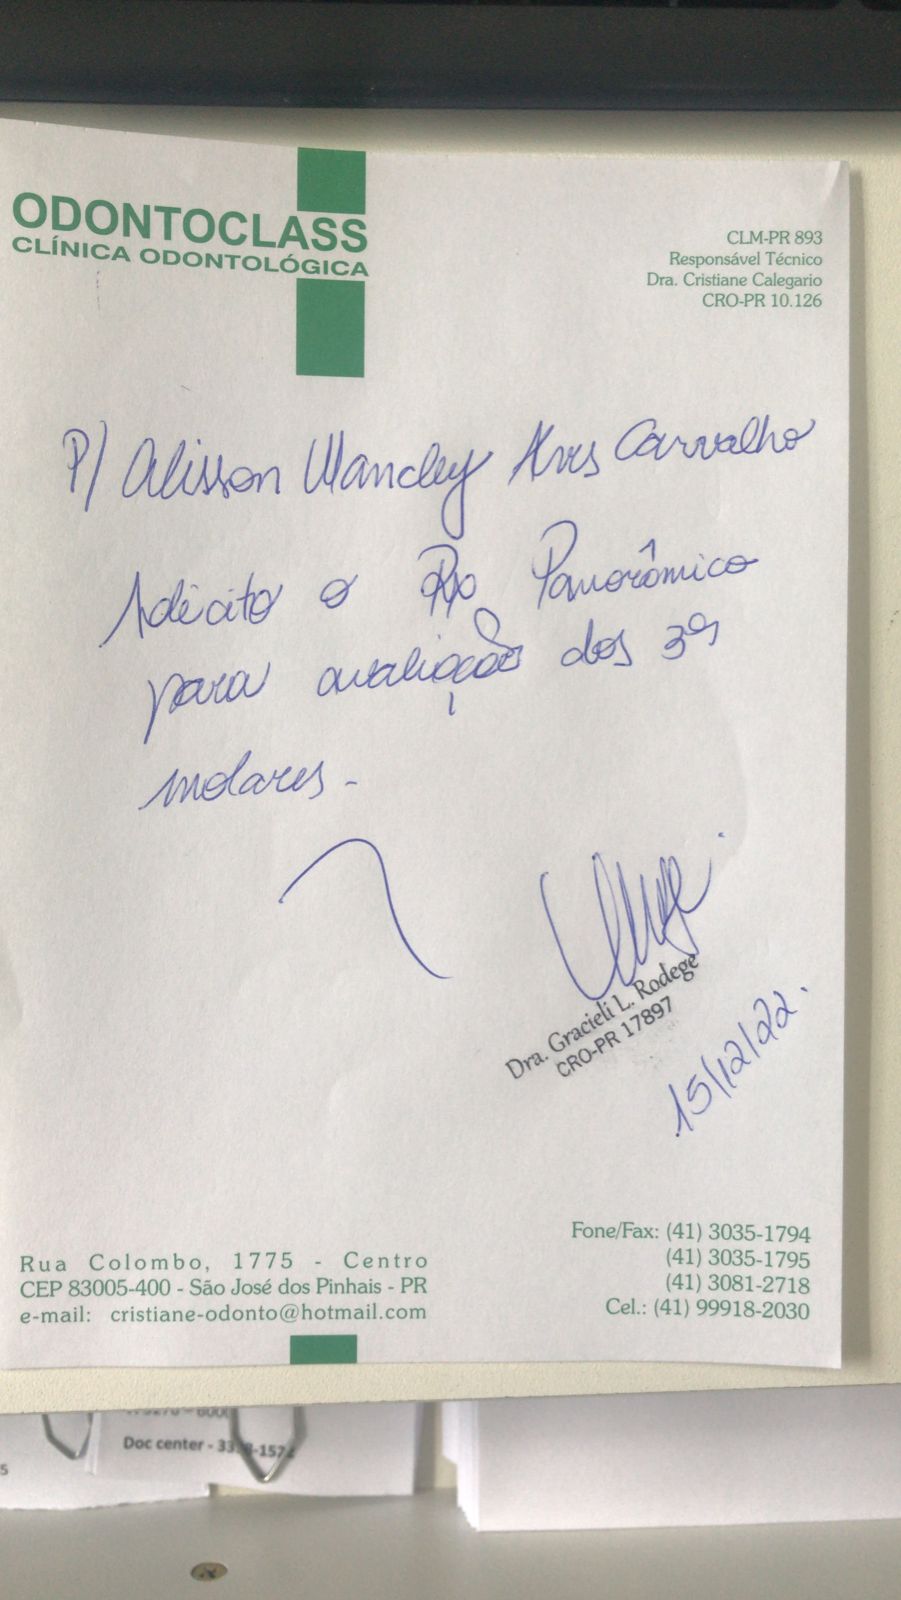 ODONTOCLASS
CLÍNICA ODONTOLÓGICA
CLM-PR 893
Responsável Técnico
Dra. Cristiane Calegario
CRO-PR 10.126
P/ Alisson Wancley Alves Carvalho
Solicito o RX Panorâmico
para avaliação dos 3ºs
molares.
Dra. Gracieli L. Rodege
CRO-PR 17897
15/12/22.
Rua Colombo, 1775 - Centro
CEP 83005-400 - São José dos Pinhais - PR
e-mail: cristiane-odonto@hotmail.com
Fone/Fax: (41) 3035-1794
(41) 3035-1795
(41) 3081-2718
Cel.: (41) 99918-2030
Doc center